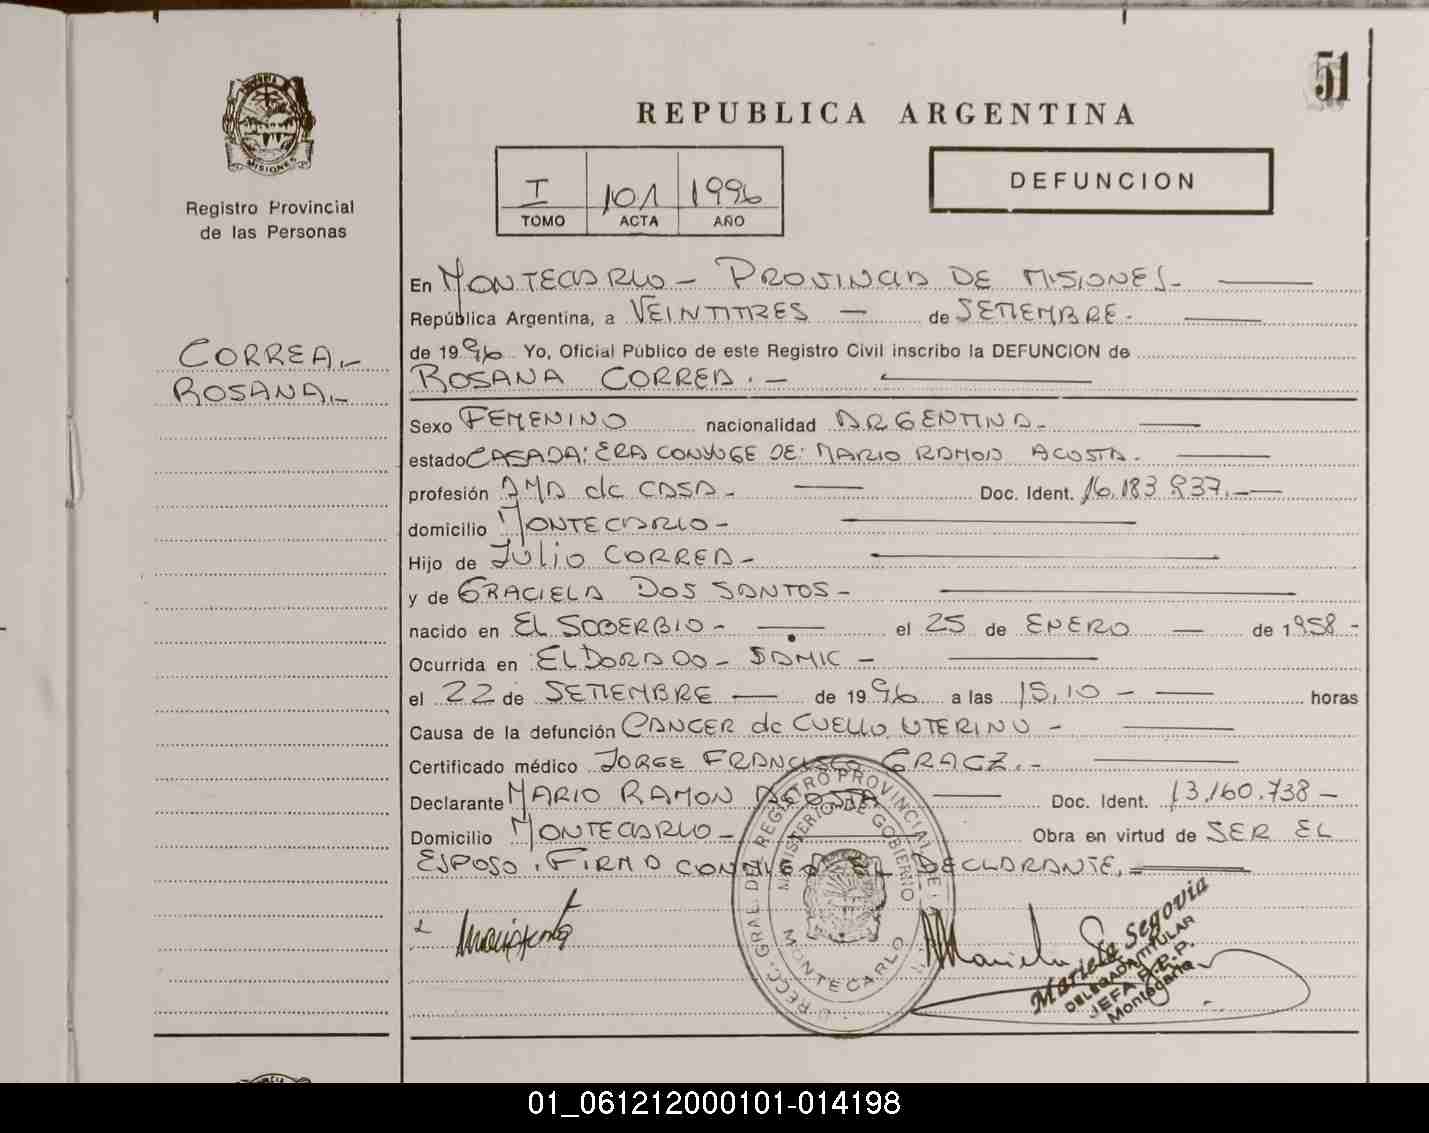 51
REPUBLICA ARGENTINA
MISIONES
Registro Provincial
de las Personas
I 101 1996
TOMO ACTA AÑO
DEFUNCION
CORREA.-
ROSANA.-
En MONTECARLO - PROVINCIA DE MISIONES.-
República Argentina, a VEINTITRES - de SETIEMBRE.-
de 1996 Yo, Oficial Público de este Registro Civil inscribo la DEFUNCION de
ROSANA CORREA.-
Sexo FEMENINO nacionalidad ARGENTINA.-
estado CASADA: ERA CONYUGE DE: MARIO RAMON ACOSTA.
profesión AMA de CASA - Doc. Ident. 16.183.937.-
domicilio MONTECARLO -
Hijo de JULIO CORREA -
y de GRACIELA DOS SANTOS -
nacido en EL SOBERBIO - el 25 de ENERO - de 1958 -
Ocurrida en ELDORADO - SAMIC -
el 22 de SETIEMBRE - de 1996 a las 15,10 - horas
Causa de la defunción CANCER de CUELLO UTERINO -
Certificado médico JORGE FRANCISCO
Declarante MARIO RAMON ACOSTA Doc. Ident. 13.160.738 -
Domicilio MONTECARLO - Obra en virtud de SER EL
ESPOSO. FIRMA CONMIGO EL DECLARANTE.
DIRECC. GRAL. DEL REGISTRO PROVINCIAL DE
MINISTERIO DE GOBIERNO
MONTECARLO
Mariela Segovia
DELEGADA TITULAR
JEFA R.P.P.
Montecarlo
01_061212000101-014198